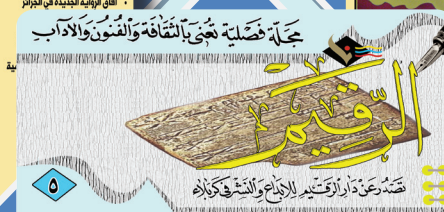 آفاق الرواية الجديدة في الجزائر
مجلة فصلية تعنى بالثقافة والفنون والآداب
الرقيم
تصدر عن دار الرقيم للإبداع والنشر في كربلاء
٥